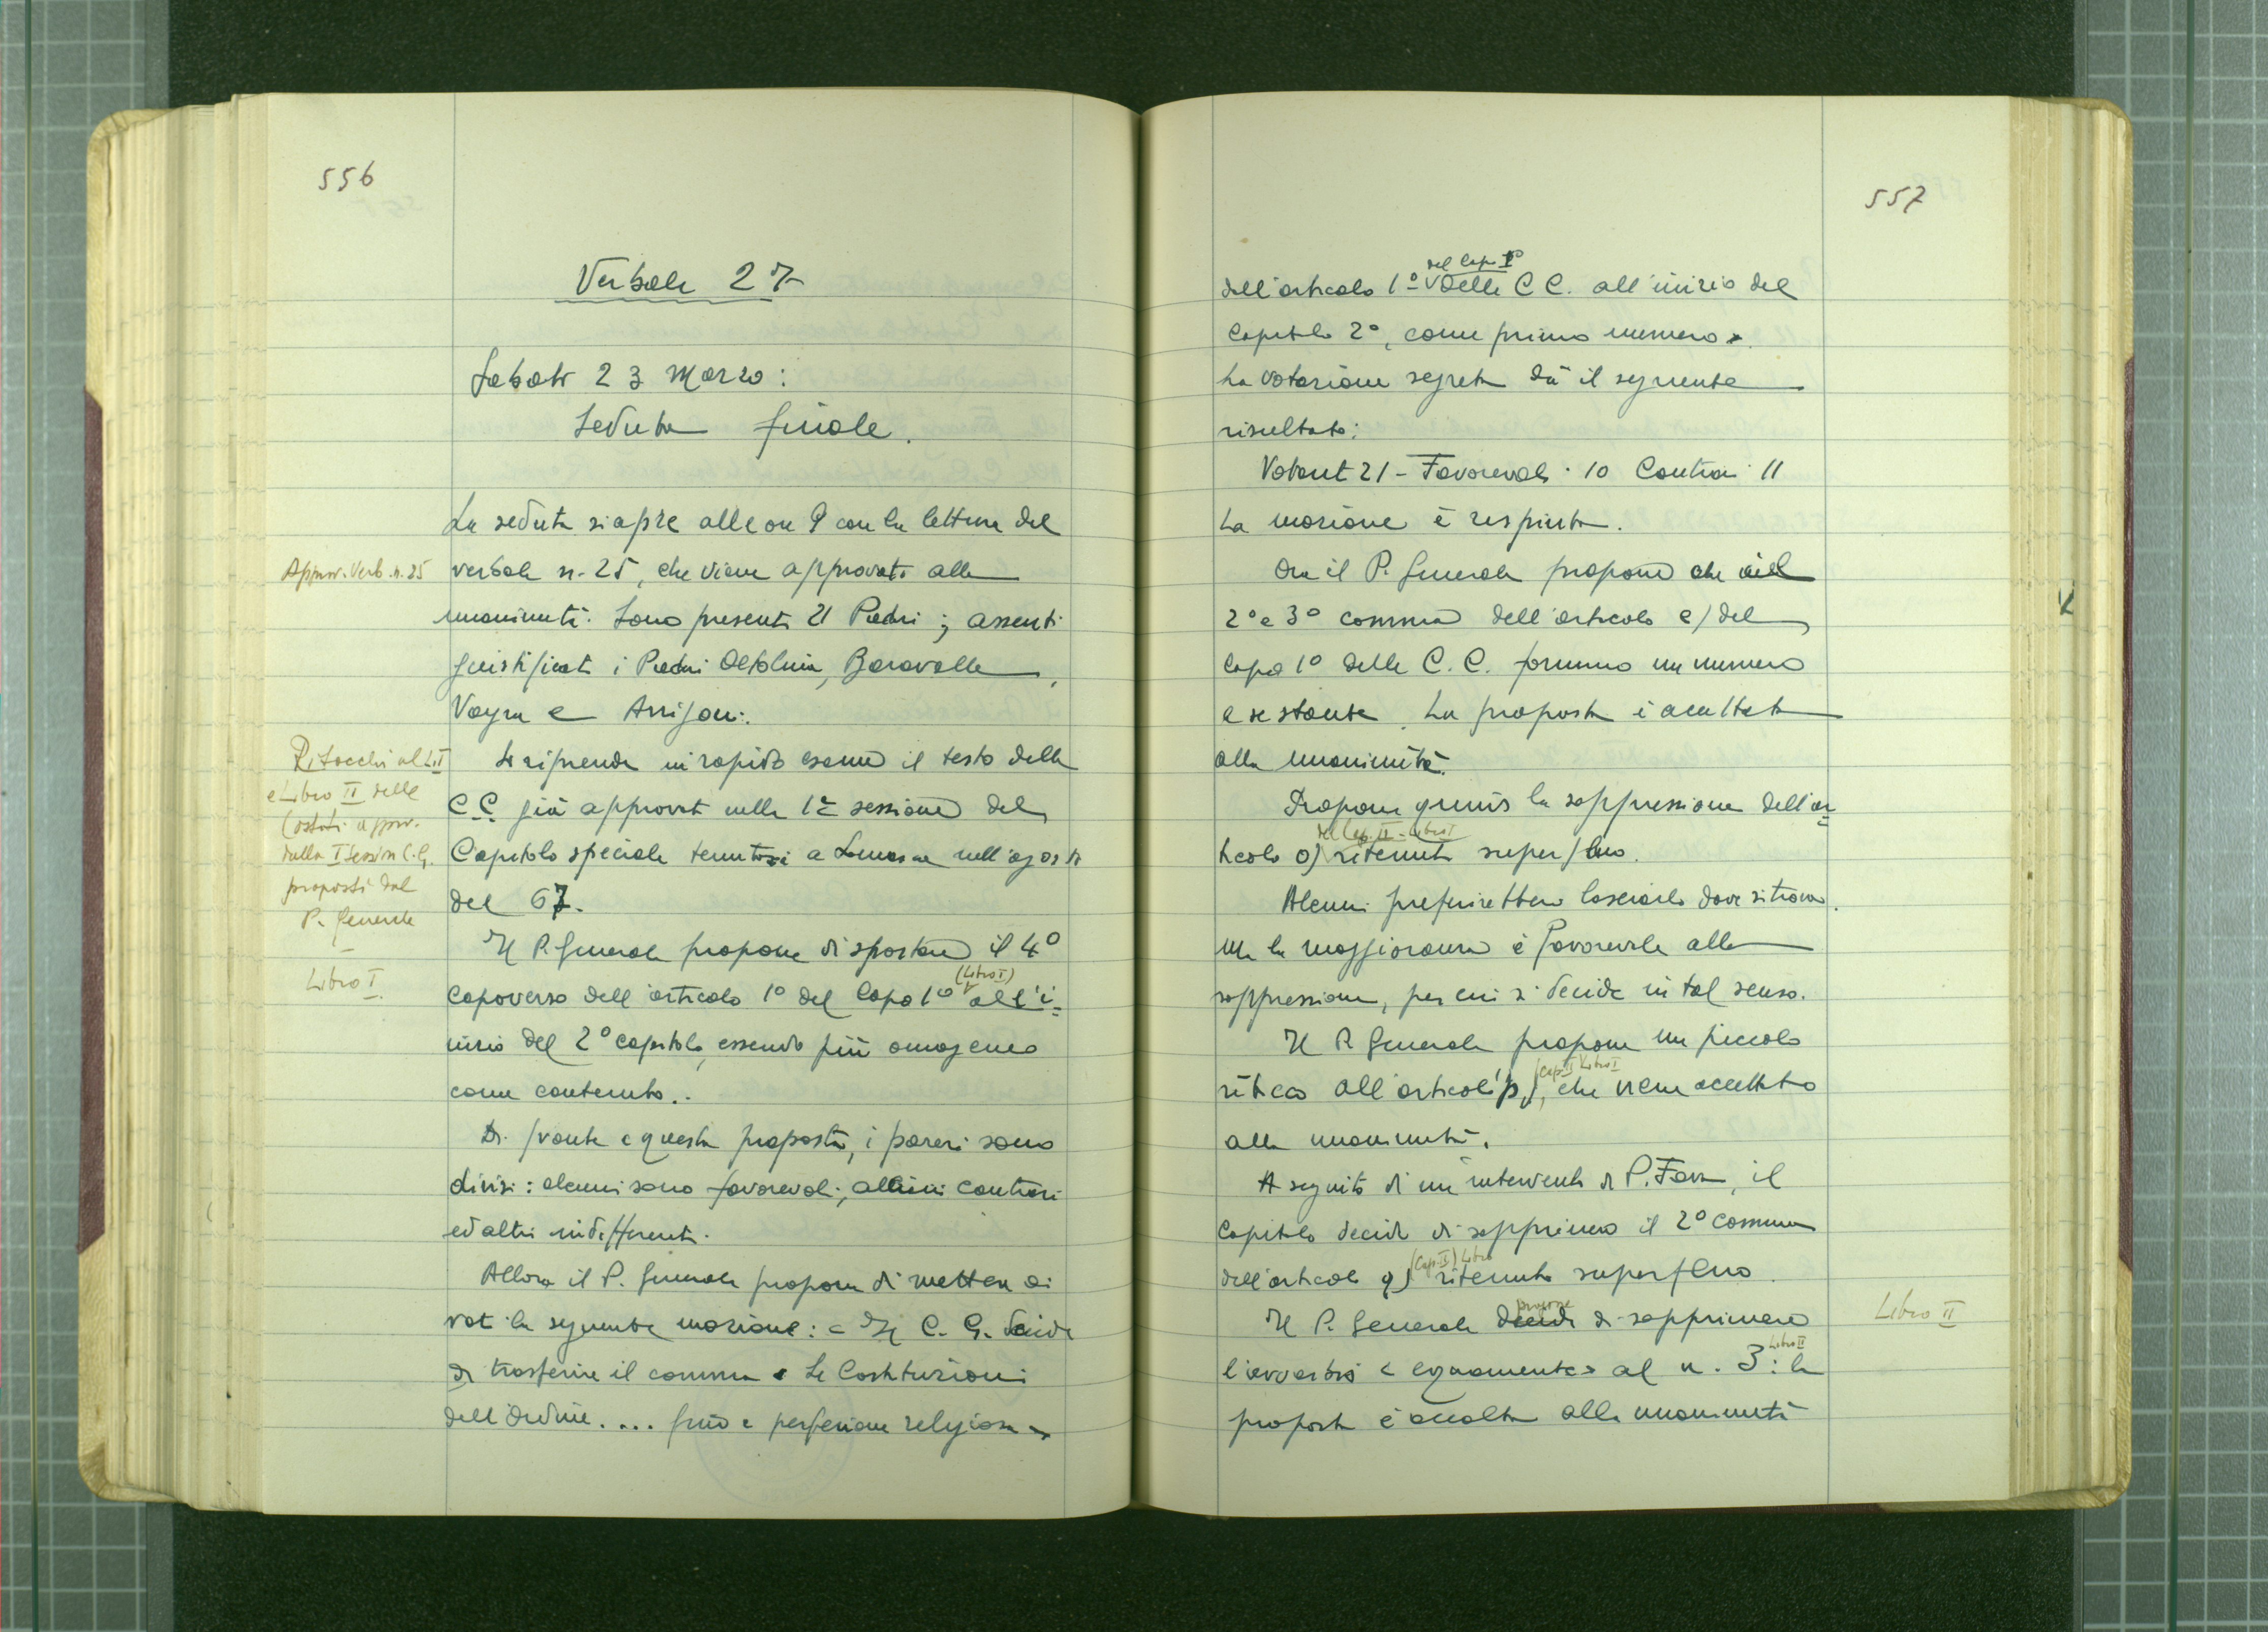 556
Verbale 27
Sabato 23 Marzo:
Seduta finale.
La seduta si apre alle ore 9 con la lettura del
Approv. Verb. n. 25
verbale n. 25, che viene approvato alla
unanimità. Sono presenti 21 Padri; assenti
giustificati i Padri Oltolina, Baravalle,
Vayra e Arrigoni.
Ritocchi al L. I
e Libro II delle
Costit. approv.
dalla I Session C.G.
proposti dal
P. Generale
-
Libro I
Si riprende in rapido esame il testo delle
C C già approvate nella 1a sessione del
Capitolo speciale tenutosi a Somasca nell'agosto
del 67.
Il P. Generale propone di spostare il 4°
(Libro I)
capoverso dell'articolo 1° del Capo 1° all'i=
nizio del 2° capitolo, essendo più omogeneo
come contenuto..
Di fronte a questa proposta, i pareri sono
divisi: alcuni sono favorevoli, altri contrari
ed altri indifferenti.
Allora il P. Generale propone di mettere ai
voti la seguente mozione: « Il C. G. decide
di trasferire il comma « Le Costituzioni
dell'Ordine.... fino a perfezione religiosa »
557
del Cap. I°
dell'articolo 1° delle C C. all'inizio del
Capitolo 2°, come primo numero».
La votazione segreta dà il seguente
risultato:
Votanti 21 - Favorevoli 10 Contrari 11
La mozione è respinta.
Ora il P. Generale propone che il
2° e 3° comma dell'articolo e) del
Capo 1° delle C. C. formino un numero
a se stante. La proposta è accettata
alla unanimità.
Propone quindi la soppressione dell'ar=
del Cap. II - Libro I
ticolo o) ritenuto superfluo.
Alcuni preferirebbero lasciarlo dove si trova.
Ma la maggioranza è favorevole alla
soppressione, per cui si decide in tal senso.
Il P. Generale propone un piccolo
(Cap. II Libro I
ritocco all'articolo p), che viene accettato
alla unanimità.
A seguito di un intervento di P. Fava, il
Capitolo decide di sopprimere il 2° comma
(Cap. II) Libro
dell'articolo q) ritenuto superfluo.
propone
Libro II
Il P. Generale decide di sopprimere
Libro II
l'avverbio « equamente» al n. 3: la
proposta è accolta alla unanimità